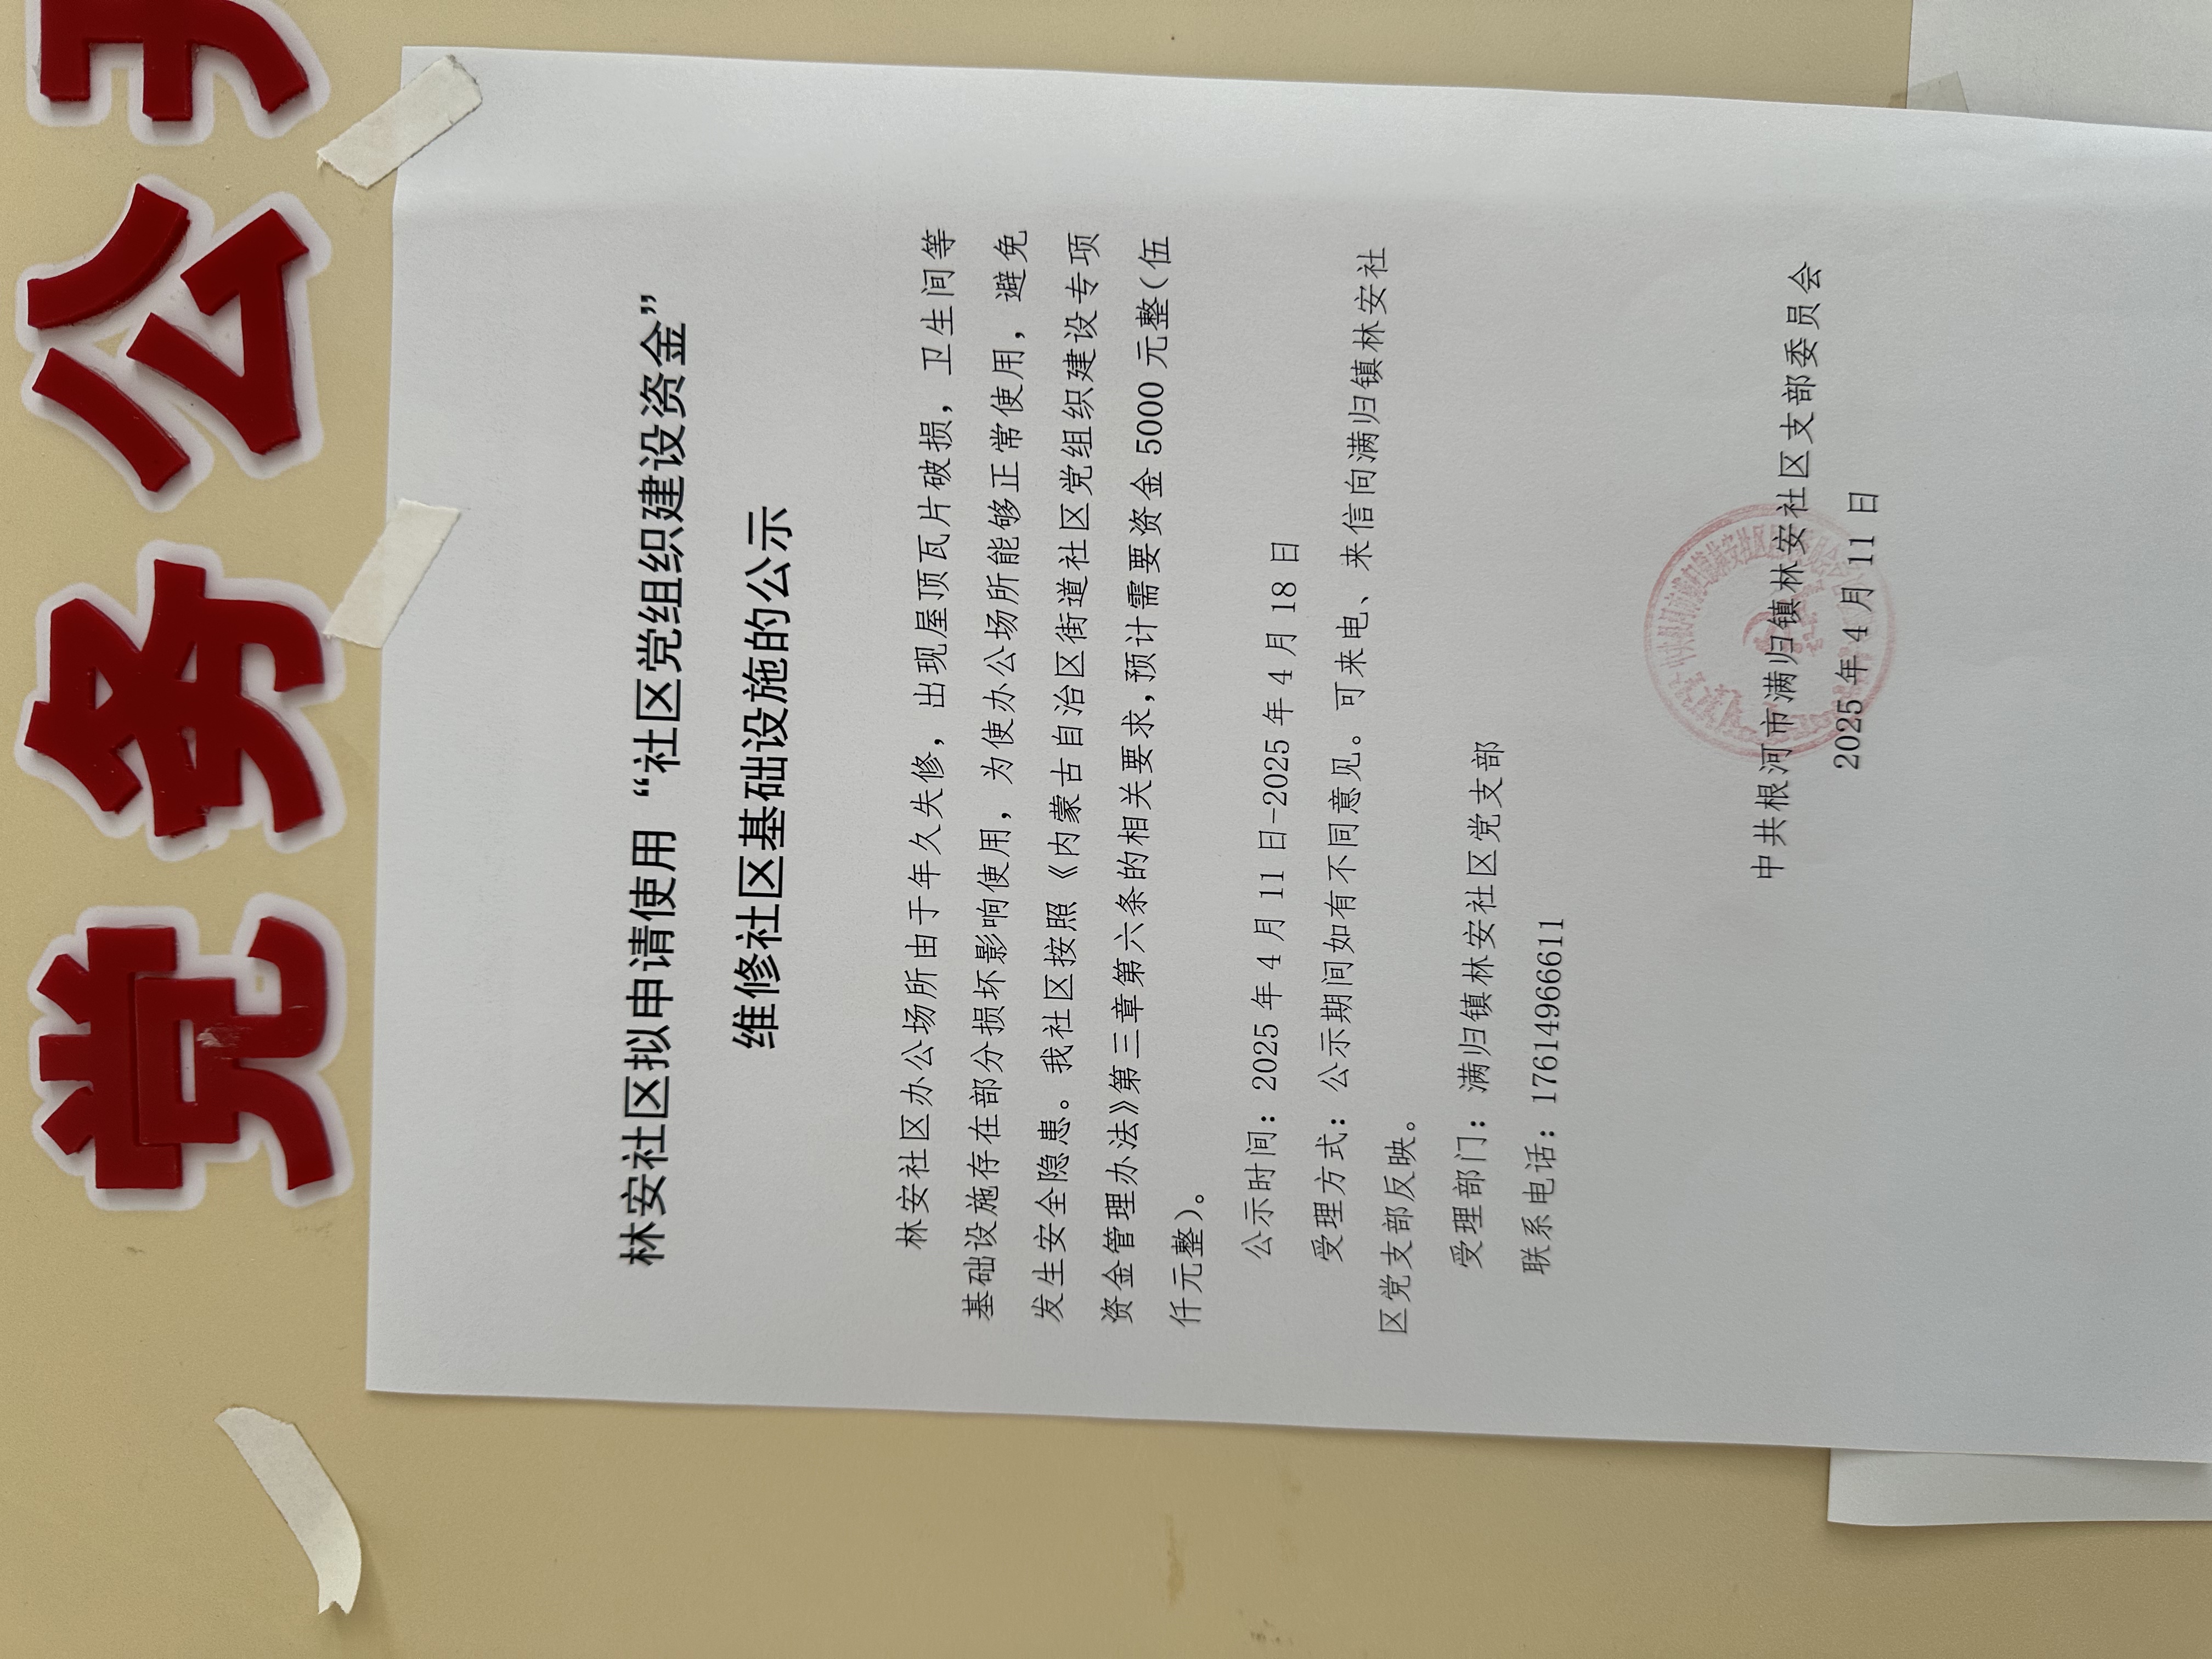 党务公开
林安社区拟申请使用“社区党组织建设资金”
维修社区基础设施的公示
林安社区办公场所由于年久失修，出现屋顶瓦片破损，卫生间等
基础设施存在部分损坏影响使用，为使办公场所能够正常使用，避免
发生安全隐患。我社区按照《内蒙古自治区街道社区党组织建设专项
资金管理办法》第三章第六条的相关要求，预计需要资金 5000 元整（伍
仟元整）。
公示时间：2025 年 4 月 11 日-2025 年 4 月 18 日
受理方式：公示期间如有不同意见。可来电、来信向满归镇林安社
区党支部反映。
受理部门：满归镇林安社区党支部
联系电话：17614966611
中共根河市满归镇林安社区支部委员会
2025年 4 月 11 日